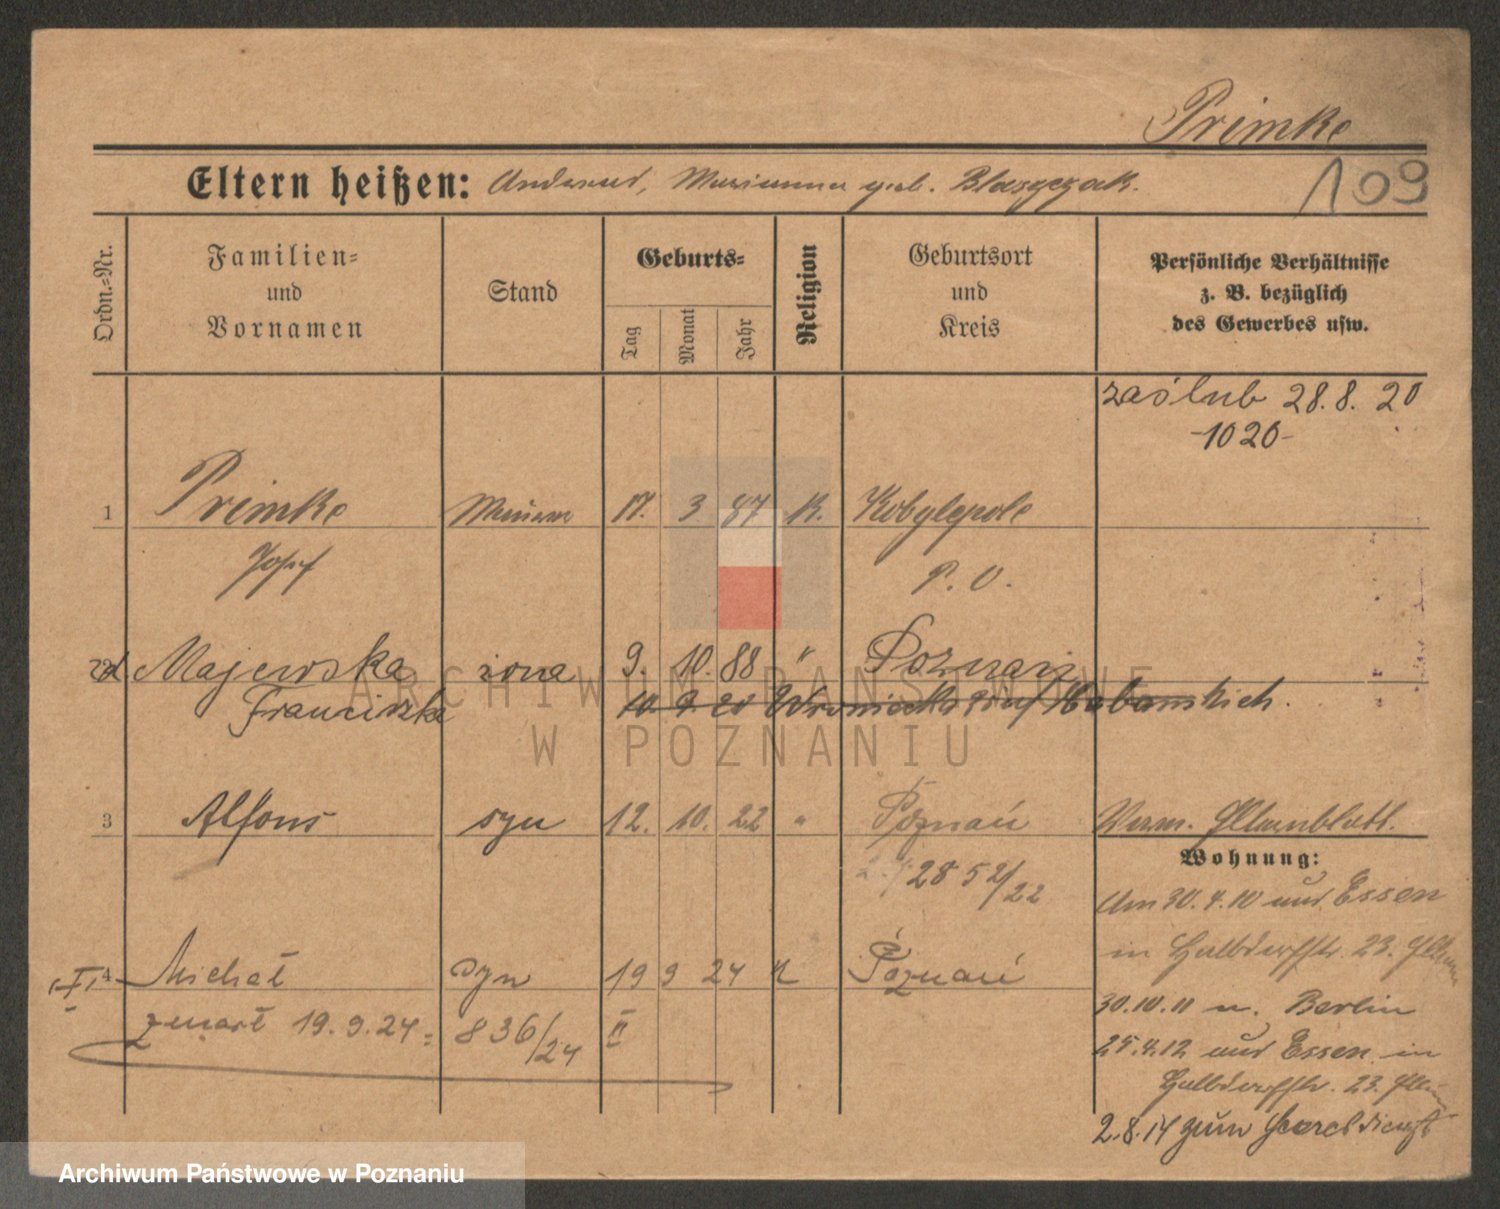 Primke
109
Eltern heißen: Andreas, Marianna geb. Błaszczak.
Ordn.=Nr.
Familien=
und
Vornamen
Stand
Geburts=
Tag
Monat
Jahr
Religion
Geburtsort
und
Kreis
Persönliche Verhältnisse
z. B. bezüglich
des Gewerbes usw.
zaślub 28.8.20
-1020-
1 Primke 17. 3 87 K. Kobylepole
Josef P. O.
Majewska żona 9. 10. 88 " Poznań
Franciszka 10. 9. 20
3 Alfons syn 12. 10. 22 " Poznań
2852/22
4 Michał syn 19 9 24 K Poznań
zmarł 19.9.24. 836/24 II
Wohnung:
Am 30.4.10 aus Essen
in 23.
30.10.11 n. Berlin
25.4.12 aus Essen in
23.
2.8.14 zum Heeresdienst
ARCHIWUM PAŃSTWOWE
W POZNANIU
Archiwum Państwowe w Poznaniu